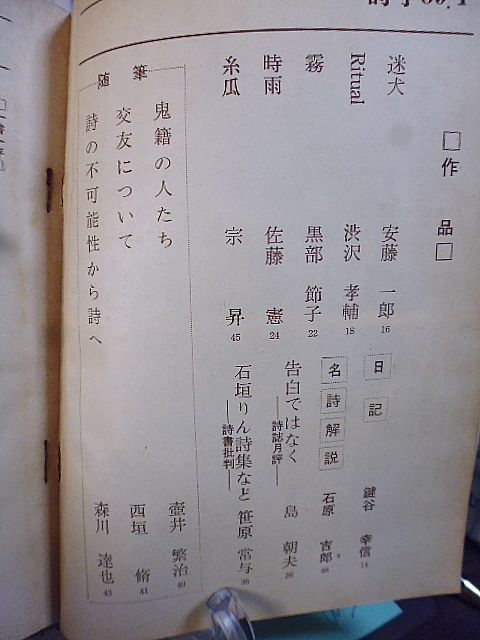 □作品□
迷犬 安藤一郎 16
Ritual 渋沢孝輔 18
霧 黒部節子 22
時雨 佐藤憲 24
糸瓜 宗昇 45
日記 鍵谷幸信 14
名詩解説 石原吉郎
告白ではなく ――詩誌月評―― 島朝夫 26
石垣りん詩集など ――詩書批判―― 笹原常与 36
随筆
鬼籍の人たち 壺井繁治 40
交友について 西垣脩 41
詩の不可能性から詩へ 森川達也 43